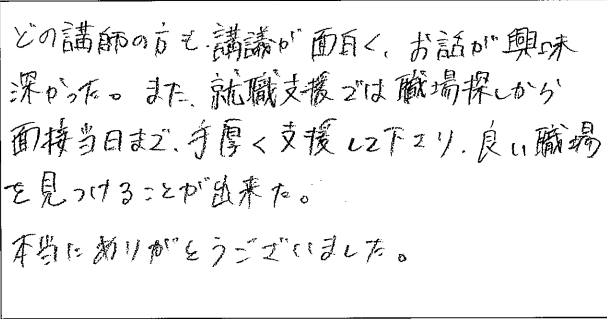 どの講師の方も、講議が面白く、お話が興味
深かった。また、就職支援では職場探しから
面接当日まで、手厚く支援して下さり、良い職場
を見つけることが出来た。
本当にありがとうございました。